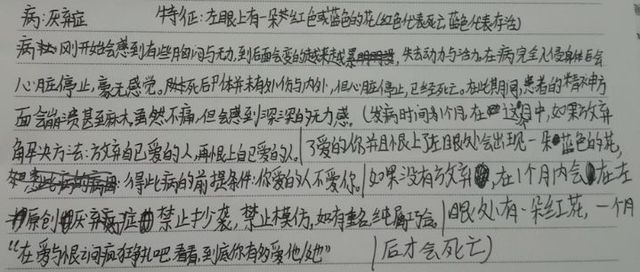 病:厌弃症 特征:左眼上有一朵红色或蓝色的花(红色代表死亡,蓝色代表存活)
病 刚开始会感到有些胸闷与无力,到后面会变的越来越 失去动力与活力,在病完全入侵身体后会
心脏停止,毫无感觉。 死后尸体并未有外伤与内外,但心脏停止,已经死亡。在此期间,患者的精神方
面会崩溃甚至麻木,虽然不痛,但会感到深深的无力感。(发病时间为1个月,在这 中,如果放弃
解决方法:放弃自己爱的人,再恨上自己爱的人。|了爱的你并且恨上了,左眼处会出现一朵蓝色的花,
:得此病的前提条件:你爱的人不爱你。|如果没有放弃 ,在1个月内会 在左
原创 厌弃症 禁止抄袭,禁止模仿,如有重名,纯属巧合。|眼处有一朵红花,一个月
“在爱与恨之间疯狂挣扎吧,看看,到底你有多爱他/她” |后才会死亡)